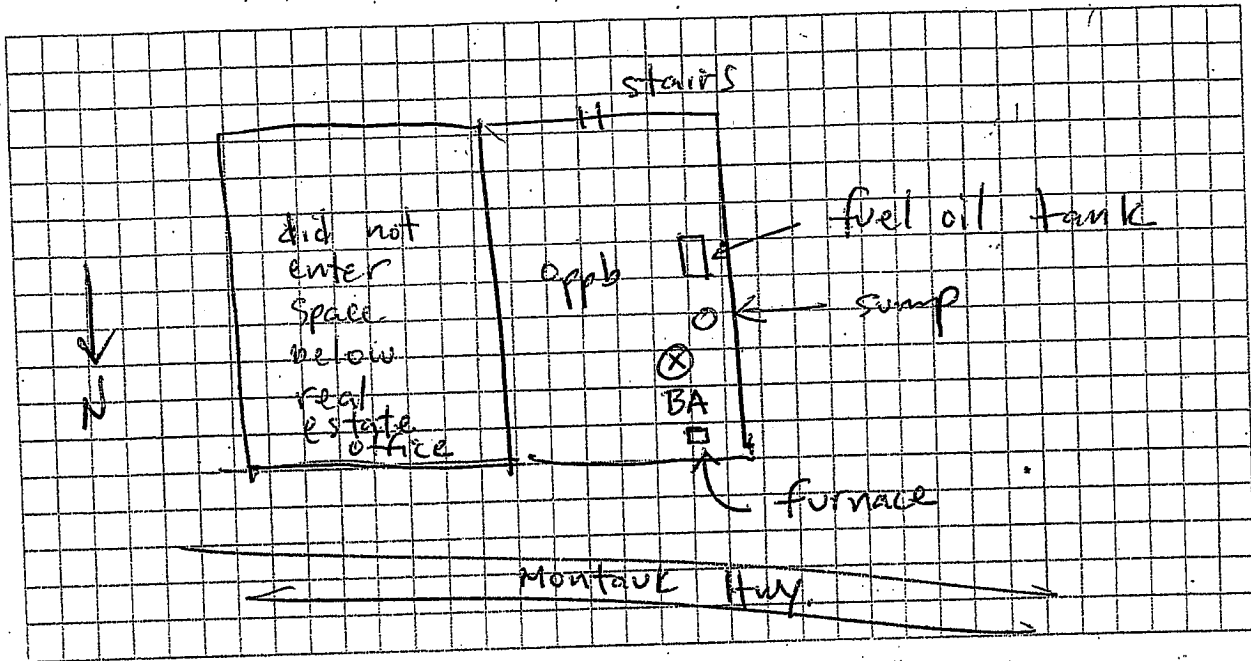 stairs
did not
enter
space
below
real
estate
office
0ppb
fuel oil tank
sump
N
BA
furnace
Montauk Hwy.